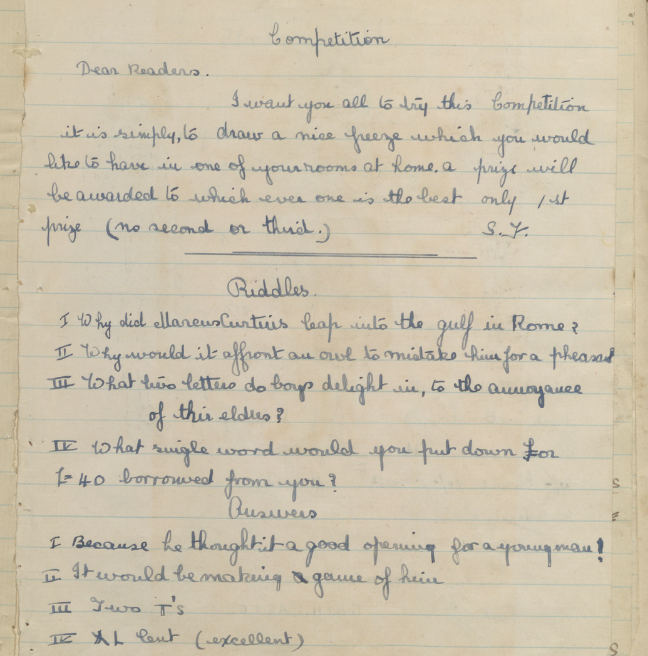 Competition
Dear Readers.
I want you all to try this Competition
it is simply, to draw a nice freeze which you would
like to have in one of your rooms at home. a prize will
be awarded to which ever one is the best only 1st
prize (no second or third.) S.F.
Riddles.
I Why did Marcus Curtius leap into the gulf in Rome?
II Why would it affront an owl to mistake him for a pheasant
III What two letters do boys delight in, to the annoyance
of their elders?
IV What single word would you put down for
£=40 borrowed from you?
Answers
I Because he thought it a good opening for a young man!
II It would be making game of him
III Two T's
IV XL lent (excellent)